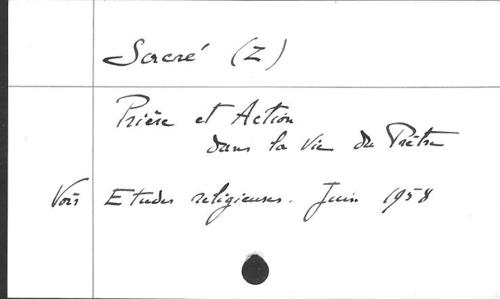 Sacré (Z)
Prière et Action
dans la vie du Prêtre
Voir Etudes religieuses. Juin 1958